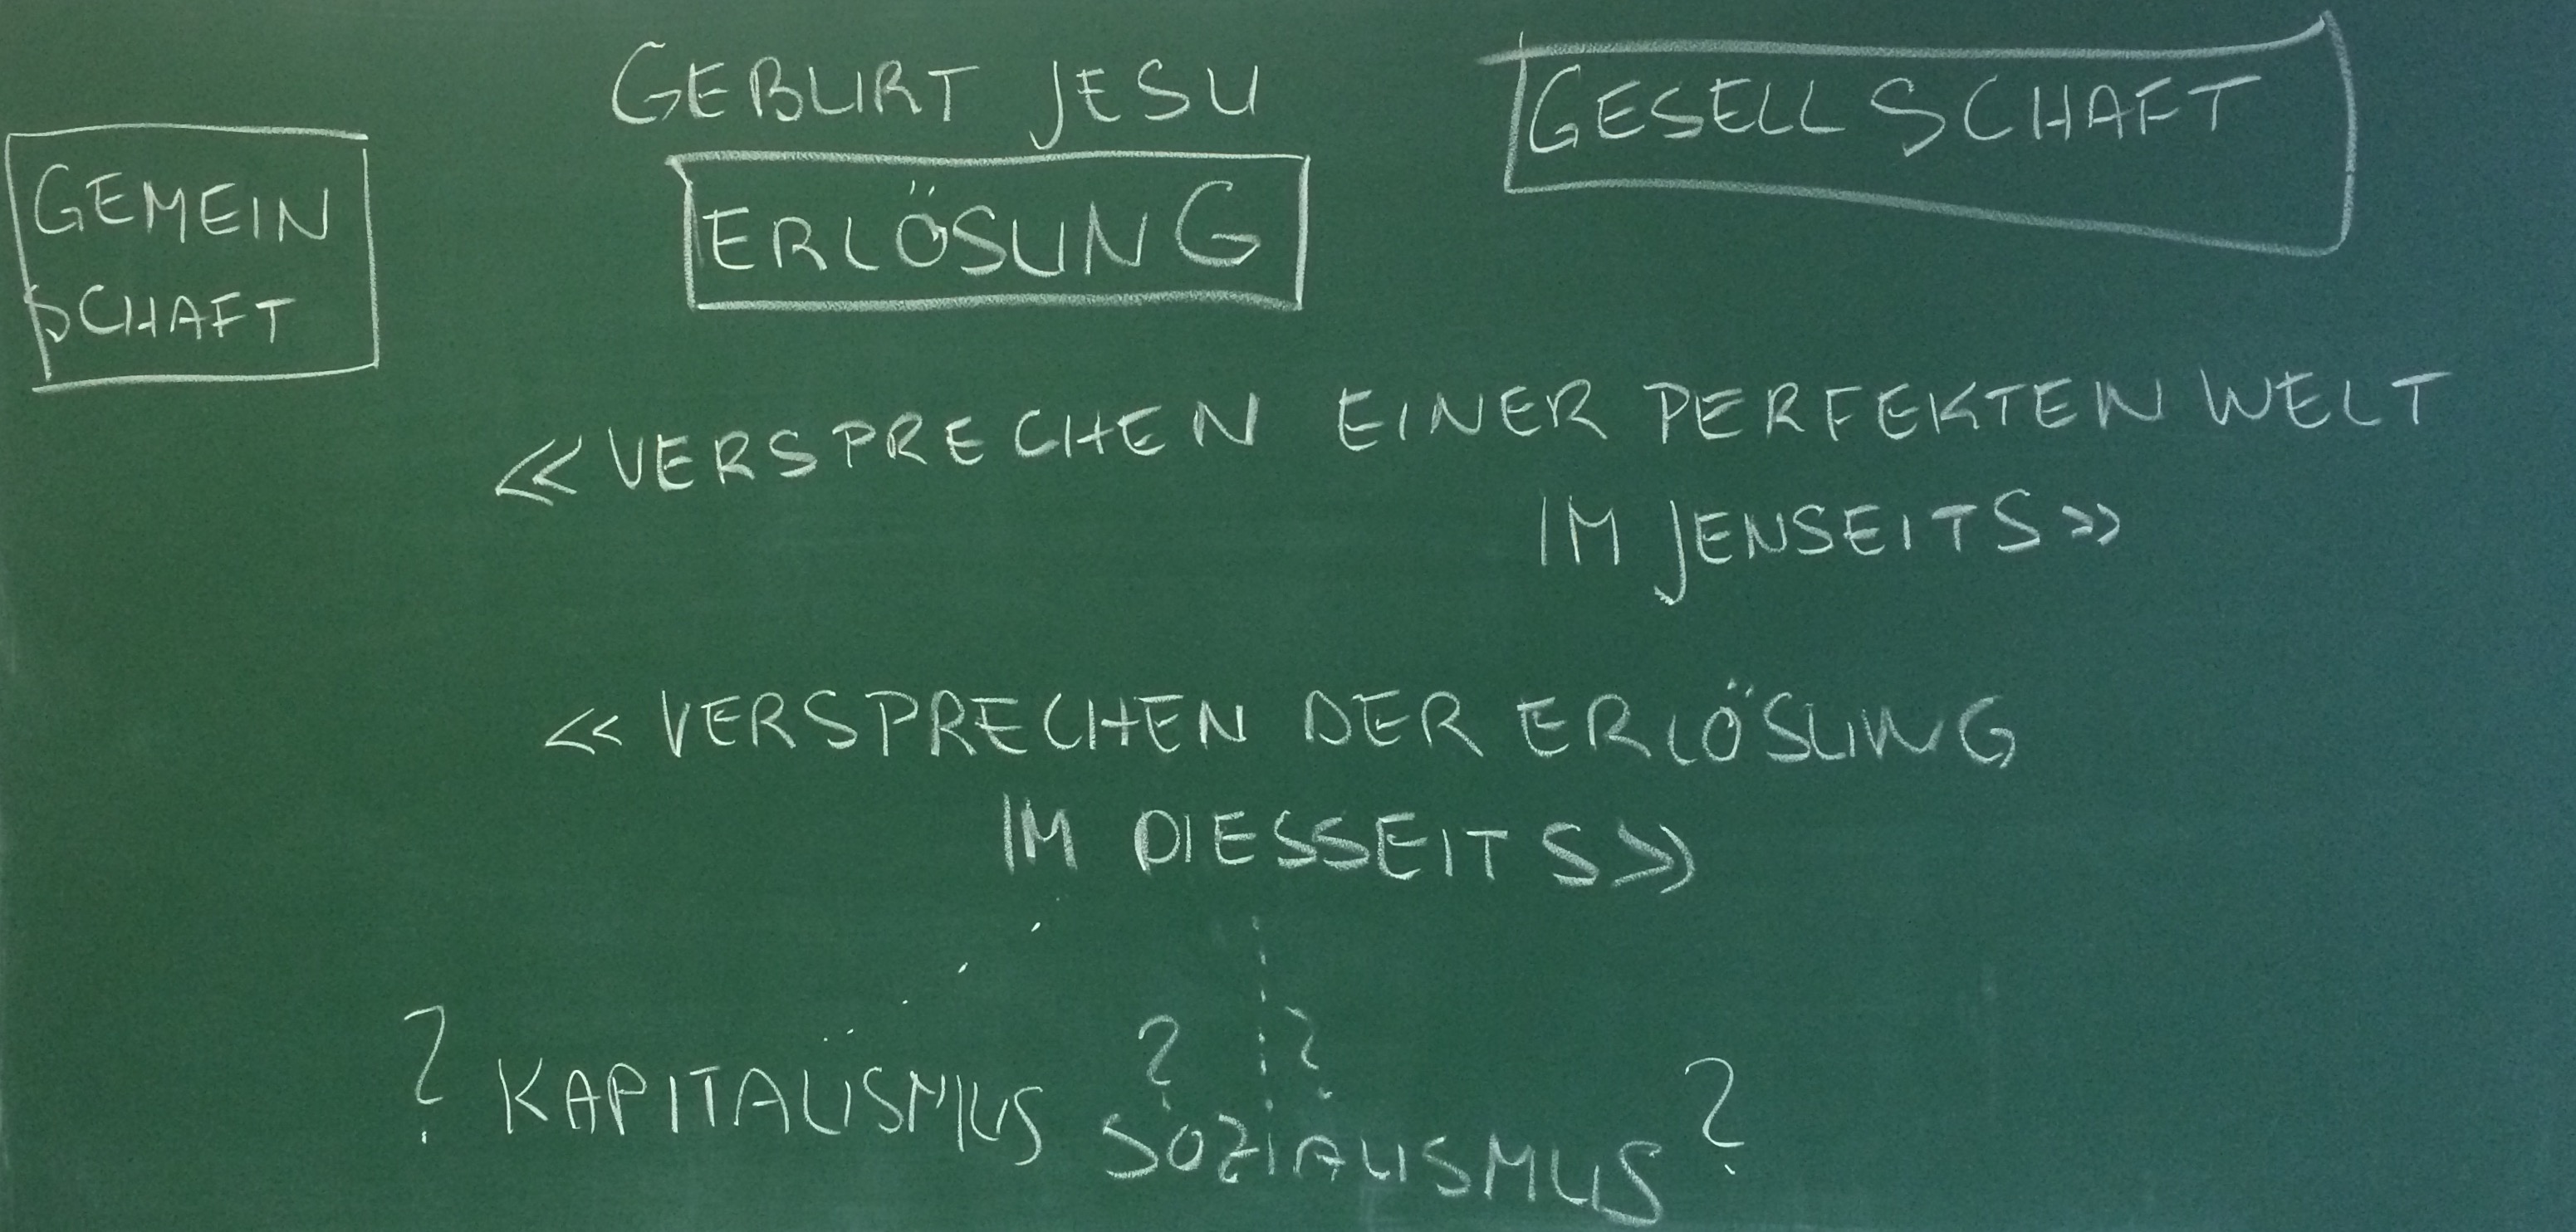 GEBURT JESU
GESELLSCHAFT
GEMEIN
SCHAFT
ERLÖSUNG
<< VERSPRECHEN EINER PERFEKTEN WELT
IM JENSEITS >>
<< VERSPRECHEN DER ERLÖSUNG
IM DIESSEITS >>
? KAPITALISMUS ? ?
SOZIALISMUS ?